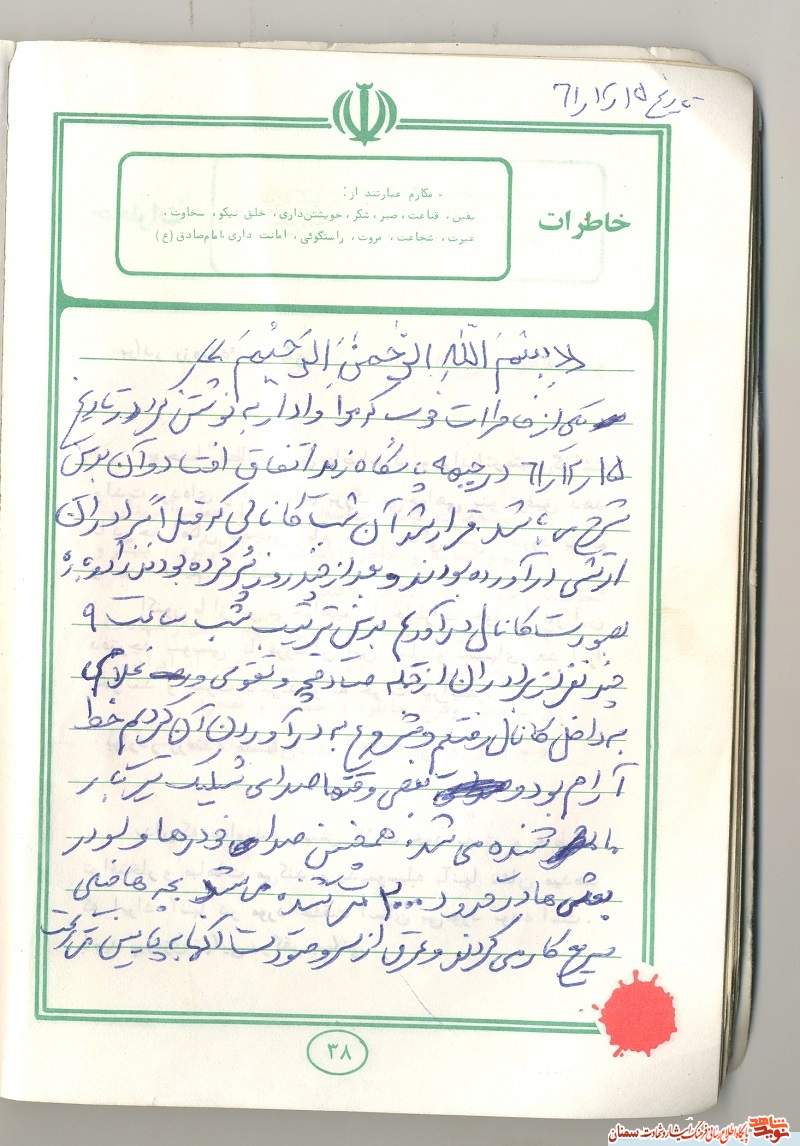 تاریخ ۶۱/۱۲/۱۵
خاطرات
مکارم عبارتند از:
یقین، قناعت، صبر، شکر، خویشتن‌داری، خلق نیکو، سخاوت،
غیرت، شجاعت، مروت، راستگوئی، امانت داری.امام صادق (ع)
«بِسْمِ اللّهِ الرَّحْمنِ الرَّحیْمِ»
یکی از خاطرات خوب که مرا وادار به نوشتن کرد در تاریخ
۶۱/۱۲/۱۵ در جبهه پاسگاه زید اتفاق افتاد و آن بدین
شرح می باشد. قرار شد آن شب کانالی که قبلاً برادران
ارتشی درآورده بودند و بعد از چند روز پر کرده بودند
بصورت کانال درآوریم بدین ترتیب شب ساعت ۹
چند نفر از برادران از جمله صادقی و تقوی و غلامی
به داخل کانال رفتیم و شروع به درآوردن آن کردیم خط
آرام بود و بعضی وقتها صدای شلیک تیربار
شنیده می شد همچنین صدای لودرها و لودر
بعثی ها در حدود ۲۰۰۰ متر شنیده می شد بچه ها خیلی
سریع کار می کردند و عرق از سر و صورت آنها به پایین می ریخت
۳۸
نوید شاهد
پایگاه اطلاع رسانی فرهنگ ایثار و شهادت سمنان